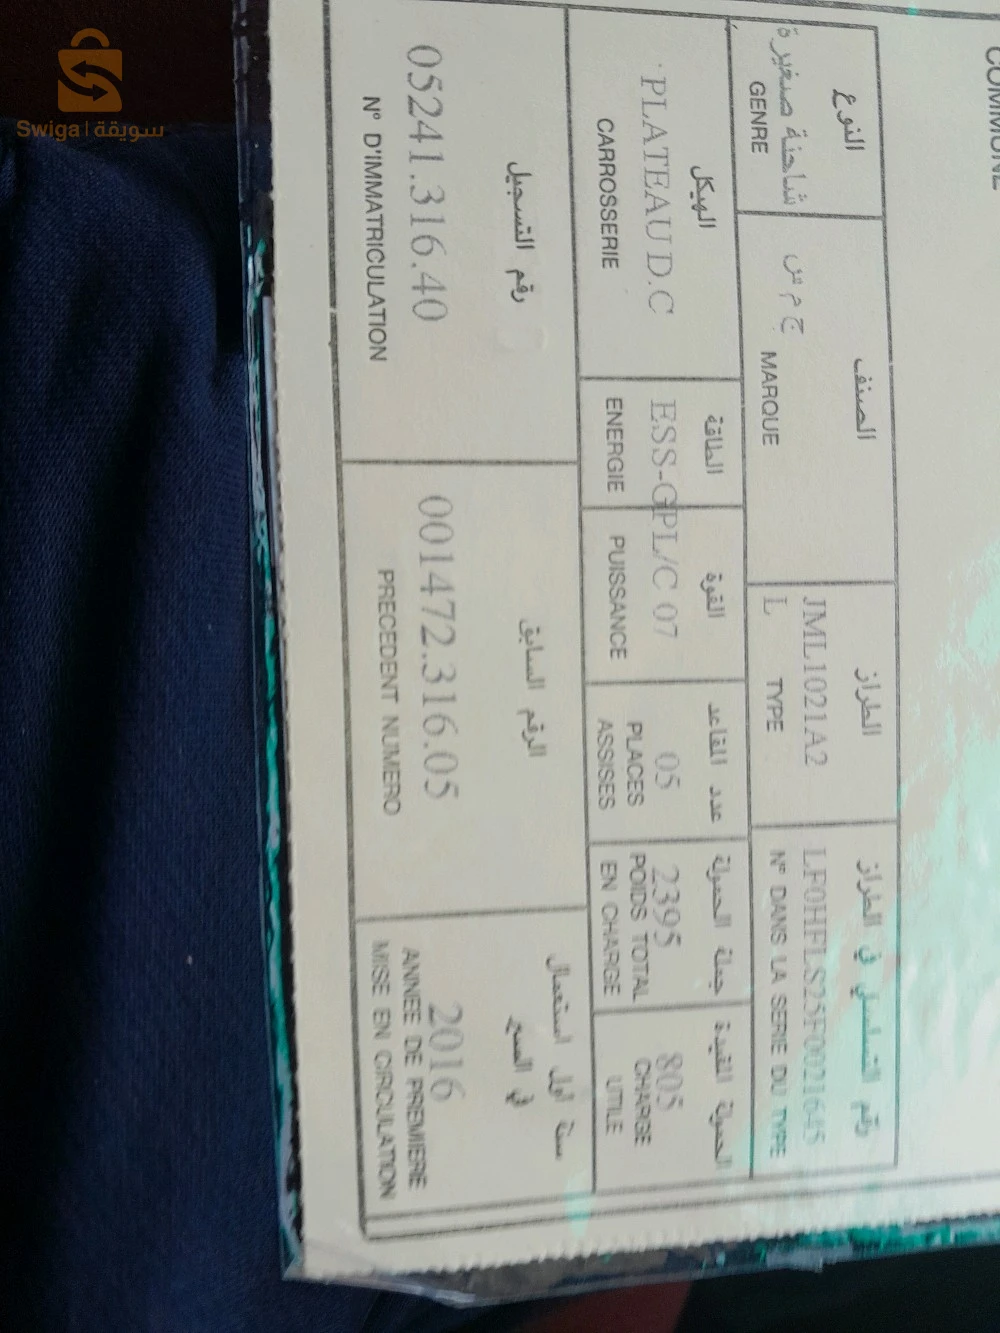 Swiga | سويقة
COMMUNE
النوع
شاحنة صغيرة
GENRE
الصنف
ج م س
MARQUE
الطراز
JML1021A2
L
TYPE
رقم التسلسلي في الطراز
LF0HFLS25F0021645
N° DANS LA SERIE DU TYPE
الهيكل
PLATEAU D.C
CARROSSERIE
الطاقة
ESS-GPL/C
ENERGIE
القوة
07
PUISSANCE
عدد المقاعد
05
PLACES
ASSISES
جملة الحمولة
2395
POIDS TOTAL
EN CHARGE
الحمولة المفيدة
805
CHARGE
UTILE
رقم التسجيل
05241.316.40
N° D'IMMATRICULATION
الرقم السابق
001472.316.05
PRECEDENT NUMERO
سنة أول استعمال
في السير
2016
ANNEE DE PREMIERE
MISE EN CIRCULATION